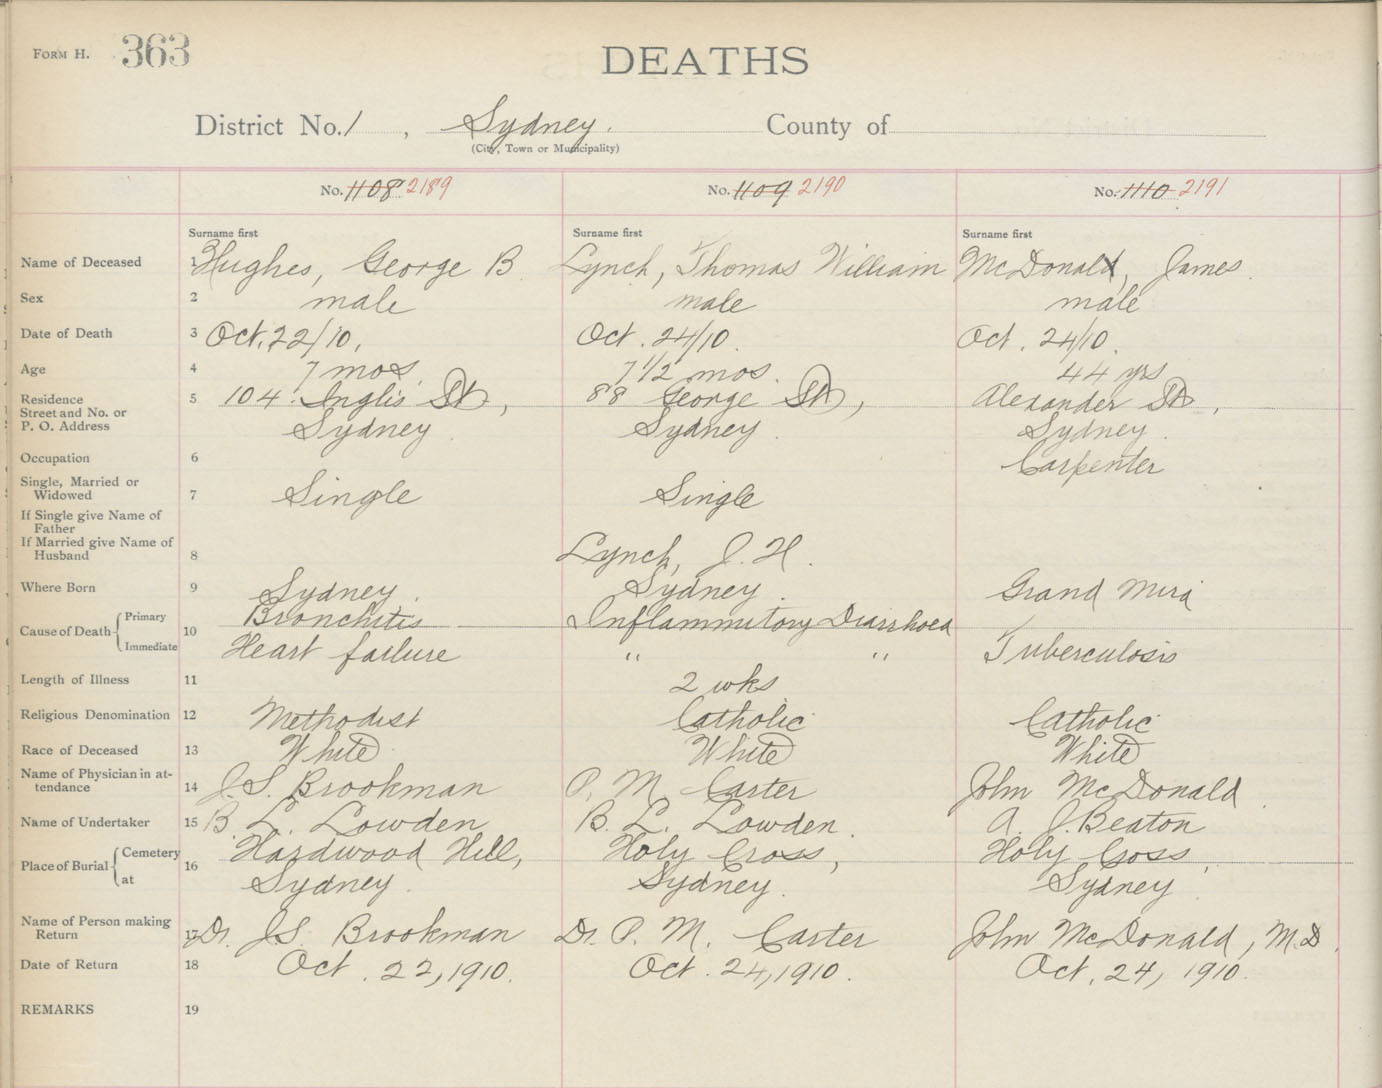 FORM H. 363
DEATHS
District No. 1, Sydney. County of
(City, Town or Municipality)
No. 1108 2189 No. 1109 2190 No. 1110 2191
Surname first Surname first Surname first
Name of Deceased 1 Hughes, George B Lynch, Thomas William McDonald, James.
Sex 2 male male male
Date of Death 3 Oct. 22/10. Oct. 24/10. Oct. 24/10.
Age 4 7 mos. 7 1/2 mos. 44 yrs
Residence 5 104 Inglis St, 88 George St, Alexander St,
Street and No. or
P. O. Address Sydney. Sydney. Sydney.
Occupation 6 Carpenter
Single, Married or
Widowed 7 Single Single
If Single give Name of
Father
If Married give Name of
Husband 8 Lynch, J. H.
Where Born 9 Sydney. Sydney. Grand Mira
Cause of Death 10 Primary Bronchitis Inflammitory Diarrhoea
Immediate Heart failure " " Tuberculosis
Length of Illness 11 2 wks
Religious Denomination 12 Methodist Catholic Catholic
Race of Deceased 13 White White White
Name of Physician in at-
tendance 14 J. S. Brookman P. M. Carter John McDonald.
Name of Undertaker 15 B. L. Lowden B. L. Lowden. A. J. Beaton
Place of Burial 16 Cemetery Hardwood Hill, Holy Cross, Holy Coss,
at Sydney. Sydney. Sydney
Name of Person making
Return 17 Dr. J. S. Brookman Dr. P. M. Carter John McDonald, M.D.
Date of Return 18 Oct. 22, 1910. Oct. 24, 1910. Oct. 24, 1910.
REMARKS 19